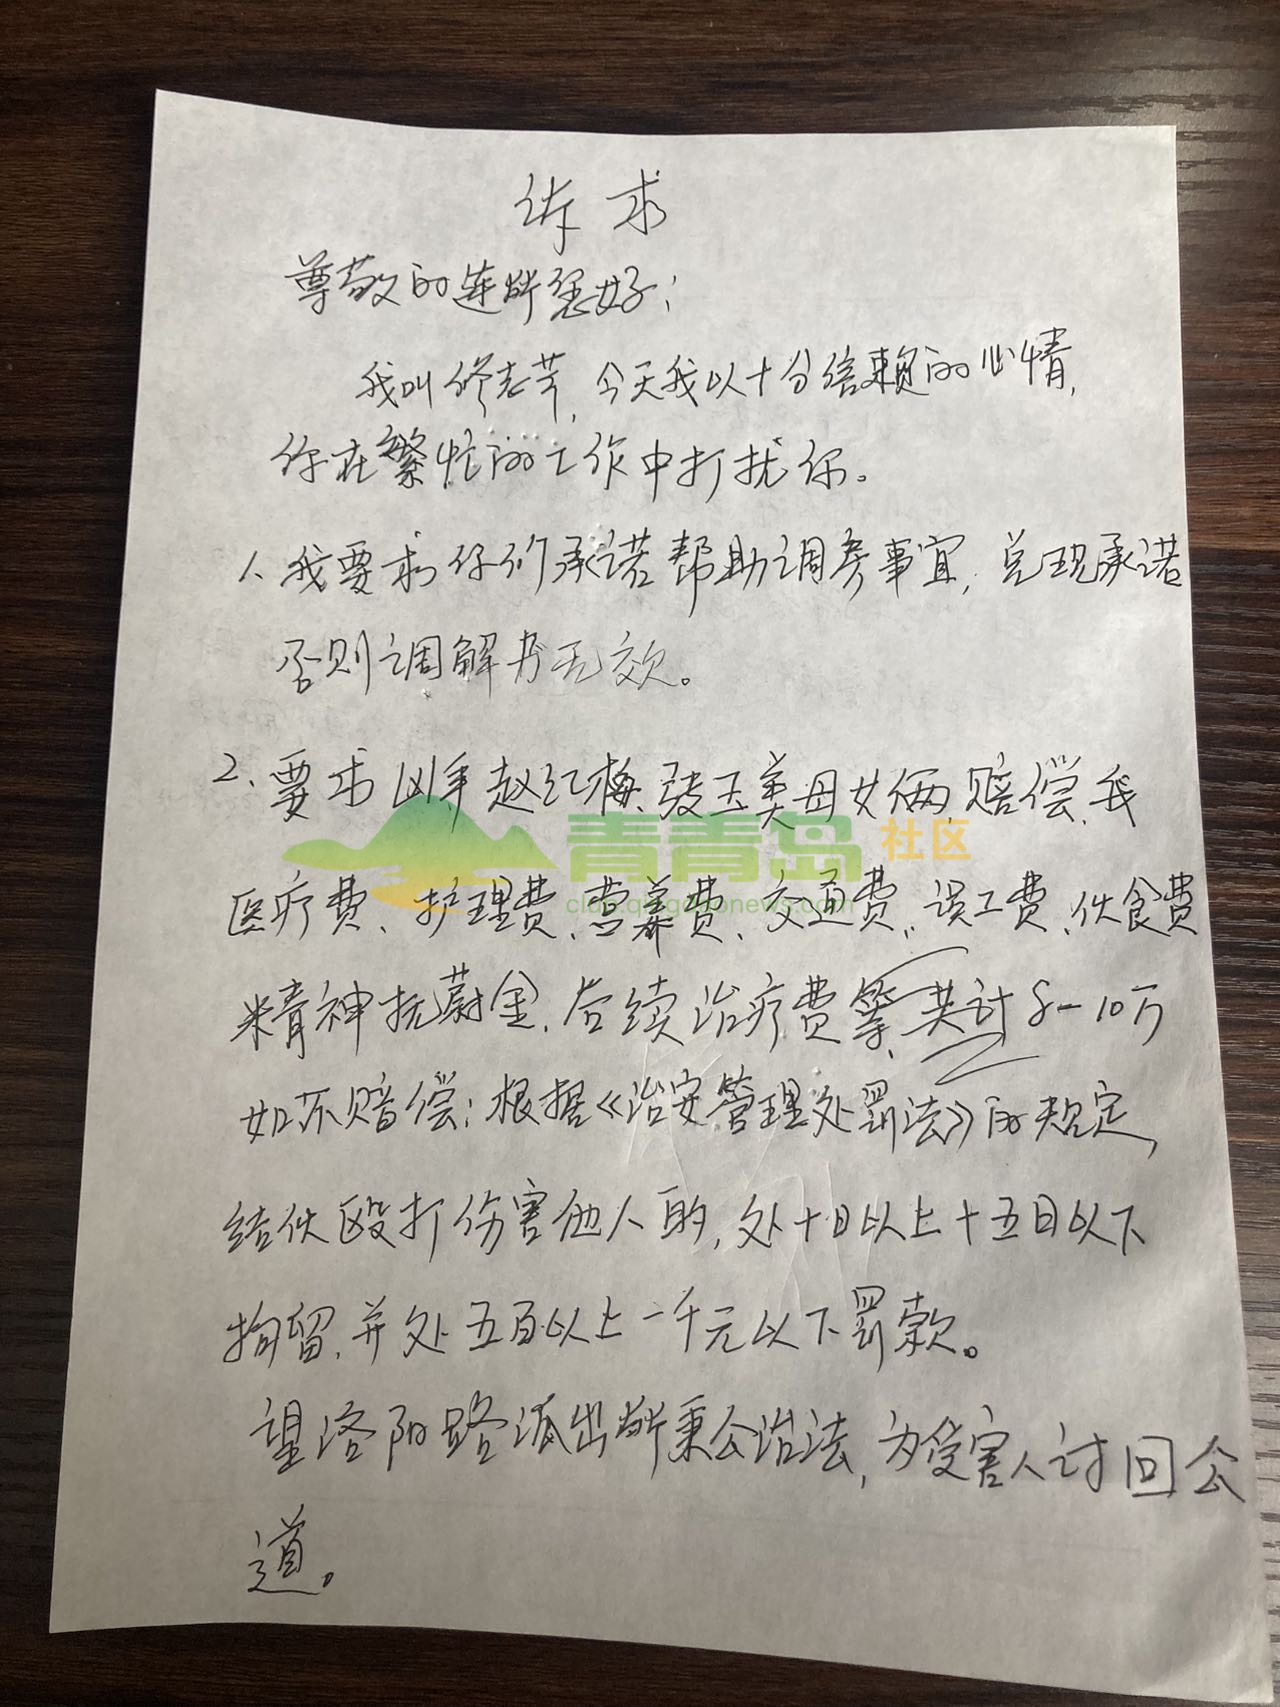 诉求
尊敬的连所您好；
我叫修志芹，今天我以十分信赖的心情，
你在繁忙的工作中打扰你。
1、我要求你们承诺帮助调房事宜，兑现承诺
否则调解书无效。
2、要求凶手赵红梅、张玉美母女俩，赔偿我
医疗费、护理费、营养费、交通费、误工费、伙食费
精神抚蔚金、后续治疗费等、共计8-10万
如不赔偿：根据《治安管理处罚法》的规定，
结伙殴打伤害他人的，处十日以上十五日以下
拘留，并处五百以上一千元以下罚款。
望洛阳路派出所秉公治法，为受害人讨回公
道。
青青岛社区
club.qingdaonews.com